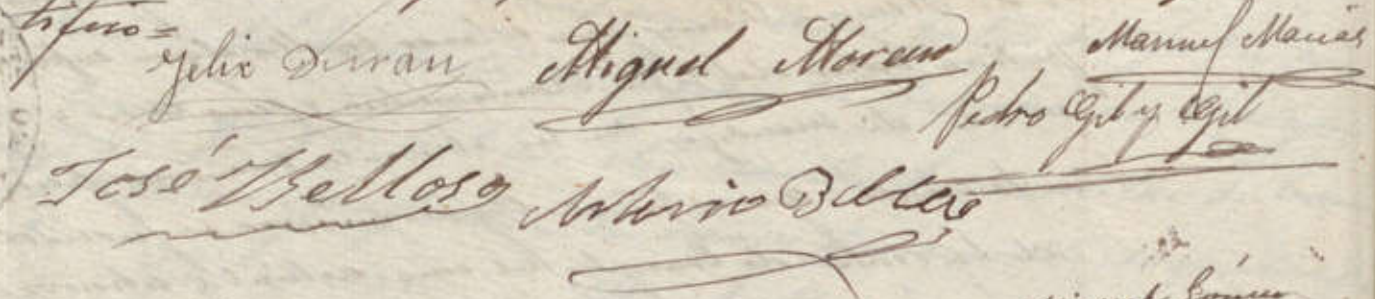 tifico=
Felix Duran Miguel Moreno Manuel Macias
Pedro Gil y Gil
José Belloso Antonio
Gómez